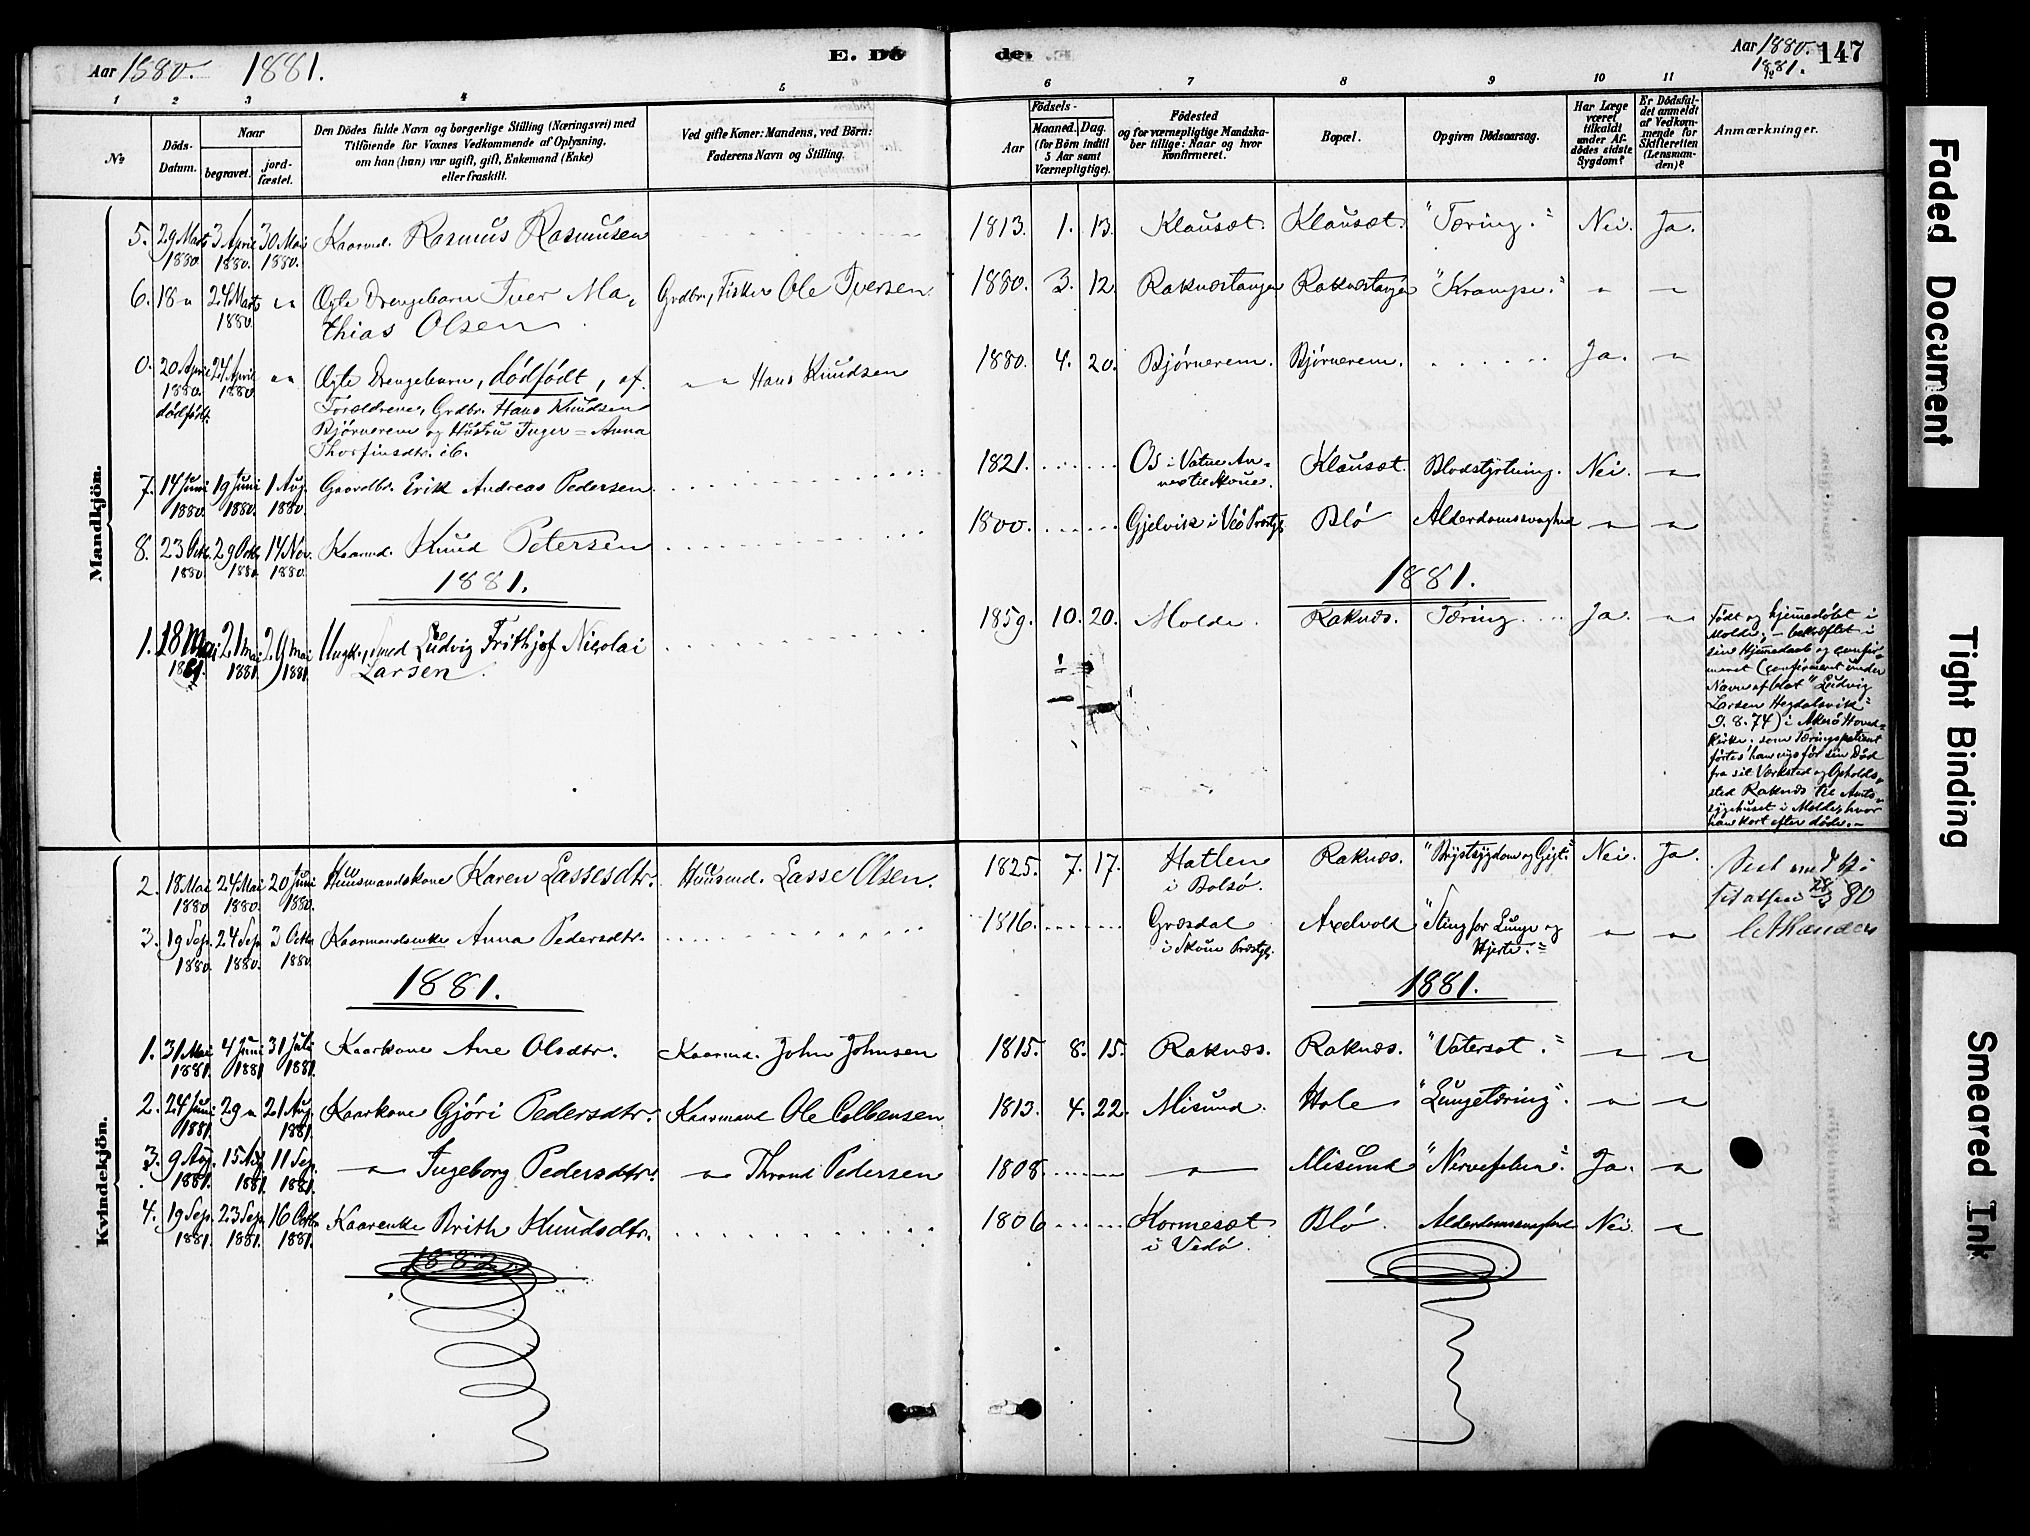 Aar 1880. 1881. E. Dö
de. Aar 1880. 1881. 147
1 2 3 4 5
6 7 8 9 10 11
№ Döds-Datum. Naar begravet. jord-fæstet.
Den Dödes fulde Navn og borgerlige Stilling (Næringsvei) med
Tilföiende for Voxnes Vedkommende af Oplysning,
om han (hun) var ugift, gift, Enkemand (Enke)
eller fraskilt.
Ved gifte Koner: Mandens, ved Börn:
Faderens Navn og Stilling.
Födsels-
Aar Maaned. Dag.
(for Börn indtil
5 Aar samt
Værnepligtige).
Födested
og for værnepligtige Mandska-
ber tillige: Naar og hvor
konfirmeret.
Bopæl.
Opgiven Dödsaarsag.
Har Læge
været
tilkaldt
under Af-
dödes sidste
Sygdom?
Er Dödsfal-
det anmeldt
af Vedkom-
mende for
Skifteretten
(Lensman-
den)?
Anmærkninger.
Mandkjön.
5. 29 Marts 1880. 3 April 1880. 30 Mai 1880. Kaarmd. Rasmus Rasmusen 1813. 1. 13. Klauset. Klauset. "Tæring." Nei. Ja.
6. 18 " 24 Marts 1880. " Ægte Drengebarn Iver Ma-
thias Olsen Grdbr., Fisker Ole Iversen 1880. 3. 12. Raknestangen Raknestangen "Krampe." " "
0. 20 April 1880. dødfødt. 24 April 1880. " Ægte Drengebarn, dødfødt, af
Forældrene, Grdbr. Hans Knudsen
Bjørnerem og Hustru Inger-Anna
Thorfinsdtr. ib. " " Hans Knudsen 1880. 4. 20. Bjørnerem. Bjørnerem. Ja. "
7. 14 Juni 1880. 19 Juni 1880. 1 Aug. 1880. Gaardbr. Erik Andreas Pedersen 1821. Os i Vatne An-
nex til Skoue. Klauset. Blodstyrtning. Nei. "
8. 23 Octb. 1880. 29 Octb. 1880. 14 Nov. 1880. Kaarmd. Knud Petersen 1800. Gjelvik i Veö Præstgj. Blö Alderdomssvaghed " "
1881. 1881.
1. 18 Mai 1881. 21 Mai 1881. 29 Mai 1881. Ungk., smed Ludvig Frithjof Nicolai
Larsen. 1859. 10. 20. Molde. Raknes. Tæring. Ja. "
Født og hjemmedøbt i
Molde, – bekræftet i
sin Hjemmedaab og confir-
meret (confirmeret under
Navn af blot "Ludvig
Larsen Hegdalsvik"
9. 8. 74) i Akerö Hoved-
kirke. som Tæringspatient
førtes han nys før sin Død
fra sit Værksted og Opholds-
sted Raknes til Amts-
sygehuset i Molde, hvor
han kort efter døde.–
Kvindekjön.
2. 18 Mai 1880. 24 Mai 1880. 20 Juni 1880. Huusmandskone Karen Lassesdtr. Huusmd. Lasse Olsen. 1825. 7. 17. Hatlen
i Bolsø. Raknes. "Brystsygdom og Gigt." Nei. Ja.
3. 19 Sep. 1880. 24 Sep. 1880. 3 Octbr. 1880. Kaarmandsenke Anna Pedersdtr. 1816. Græsdal
i Skoue Præstgj. Axelvold "Sting for Lunge og
Hjerte." " "
1881. 1881.
1. 31 Mai 1881. 4 Juni 1881. 31 Juli 1881. Kaarkone Ane Olsdtr. Kaarmd. John Johnsen 1815. 8. 15. Raknes. Raknes. "Vatersot." " "
2. 24 Juni 1881. 29 " 21 Aug. 1881. Kaarkone Gjöri Pedersdtr. Kaarmand Ole Colbensen 1813. 4. 22. Misund. Hole "Lungetæring." " "
3. 9 Aug. 1881. 15 Aug. 1881. 11 Sep. 1881. " Ingeborg Pedersdtr. " Thrond Pedersen 1808. " Misund "Nervefeber". Ja. "
4. 19 Sep. 1881. 23 Sep. 1881. 16 Octbr. 1881. Kaarenke Brith Knudsdtr. 1806 Kormeset
i Vedö. Blö. Alderdomssvaghed Nei. "
1882.
Faded Document
Tight Binding
Smeared Ink